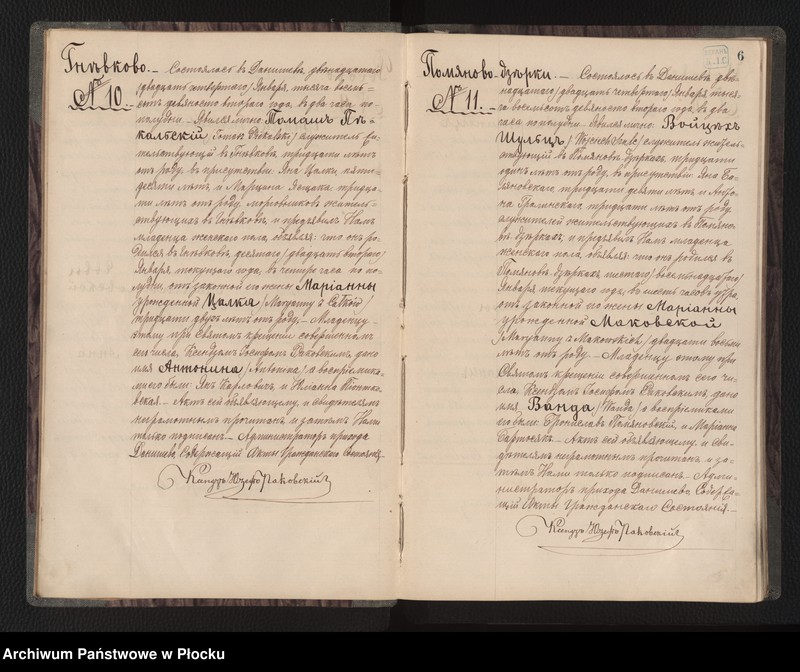 Гнѣвково. — Состоялось въ Данишевѣ, двѣнадцатаго
№ 10.
/двадцать четвертаго/ Января, тысяча восемь-
сотъ девяносто втораго года, въ два часа по-
полудни. — Явился лично: Томашъ Пѣ-
кальскій, служитель жи-
тельствующій въ Гнѣвковѣ, тридцати лѣтъ
отъ роду, въ присутствіи: Яна Цалки, пяти-
десяти лѣтъ, и Марціана тридца-
ти лѣтъ отъ роду, житель-
ствующихъ въ Гнѣвковѣ, и предъявилъ Намъ
младенца женскаго пола, объявляя: что онъ ро-
дился въ Гнѣвковѣ, десятаго /двадцать втораго/
Января, текущаго года, въ четыре часа по по-
лудни, отъ законной его жены Маріанны
урожденной Цалка /Maryanny z Całków/
тридцати двухъ лѣтъ отъ роду. — Младенцу
этому при Святомъ крещеніи совершенномъ
сего числа, Ксендзомъ Іосифомъ Раковскимъ, дано
имя Антонина /Antonina/, а воспріемника-
ми его были: Янъ Карловичъ, и
— Актъ сей объявляющему, и свидѣтелямъ
неграмотнымъ прочитанъ, и затѣмъ Нами
только подписанъ. — Администраторъ прихода
Данишева, Содержащій Акты Гражданскаго Состоянія.
Ксендзъ Юзефъ Раковскій
6
Помяново-дзѣрки. — Состоялось въ Данишевѣ, двѣ-
№ 11.
надцатаго /двадцать четвертаго/ Января, тыся-
ча восемьсотъ девяносто втораго года, въ два
часа пополудни. — Явился лично: Войцѣхъ
Шульцъ, служитель житель-
ствующій въ Помяновѣ-дзѣркахъ, тридцати
одинъ лѣтъ отъ роду, въ присутствіи: Яна
тридцати девяти лѣтъ, и
тридцати лѣтъ отъ роду
служителей жительствующихъ въ Помяно-
вѣ-дзѣркахъ, и предъявилъ Намъ младенца
женскаго пола, объявляя: что онъ родился въ
Помяновѣ-дзѣркахъ, шестаго /восемнадцатаго/
Января, текущаго года, въ шесть часовъ утра,
отъ законной его жены Маріанны
урожденной Маковской
/Maryanny z Makowskich/, двадцати восьми
лѣтъ отъ роду. — Младенцу этому при
Святомъ крещеніи совершенномъ сего чи-
сла, Ксендзомъ Іосифомъ Раковскимъ, дано
имя, Ванда /Wanda/, а воспріемниками
его были: Брониславъ Помяновскій, и Маріанна
— Актъ сей объявляющему, и сви-
дѣтелямъ неграмотнымъ прочитанъ, и за-
тѣмъ Нами только подписанъ. — Адми-
нистраторъ прихода Данишева, Содержа-
щій Акты Гражданскаго Состоянія. —
Ксендзъ Юзефъ Раковскій
Archiwum Państwowe w Płocku